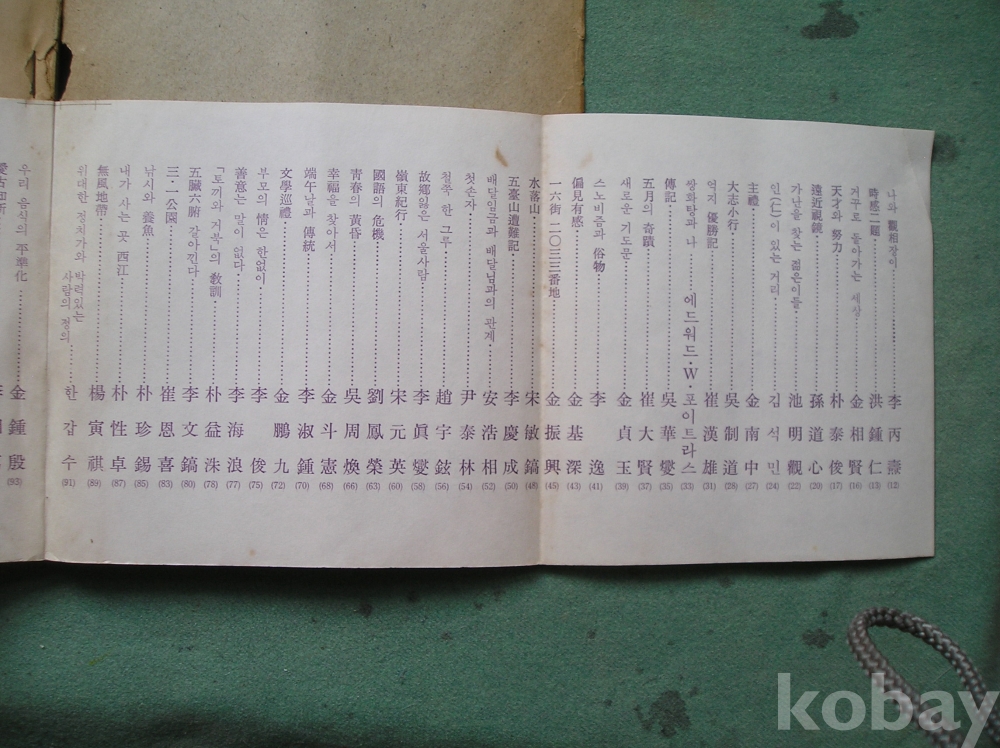 나와 觀相장이 李丙燾 (12)
時感二題 洪鍾仁 (13)
거꾸로 돌아가는 세상 金相賢 (16)
天才와 努力 朴泰俊 (17)
遠近視鏡 孫道心 (20)
가난을 찾는 젊은이들 池明觀 (22)
인(仁)이 있는 거리 김석민 (24)
主禮 金南中 (27)
大志小行 吳制道 (28)
억지 優勝記 崔漢雄 (31)
쌍화탕과 나 에드워드·W·포이트라스 (33)
傳記 吳華燮 (35)
五月의 奇蹟 崔大賢 (37)
새로운 기도문 金貞玉 (39)
스노비즘과 俗物 李逸 (41)
偏見有感 金基深 (43)
一六街 二〇三三番地 金振興 (45)
水落山 宋敏鎬 (48)
五臺山遭難記 李慶成 (50)
배달임금과 배달님과의 관계 安浩相 (52)
첫손자 尹泰林 (54)
철쭉 한 그루 趙宇鈘 (56)
故鄕잃은 서울사람 李眞燮 (58)
嶺東紀行 宋元英 (60)
國語의 危機 劉鳳榮 (63)
靑春의 黃昏 吳周煥 (66)
幸福을 찾아서 金斗憲 (68)
端午날과 傳統 李淑鍾 (70)
文學巡禮 金鵬九 (72)
부모의 情은 한없이 李俊 (75)
善意는 말이 없다 李海浪 (77)
「토끼와 거북」의 敎訓 朴益洙 (78)
五臟六腑 갈아낀다 李文鎬 (80)
三·一公園 崔恩喜 (83)
낚시와 養魚 朴珍錫 (85)
내가 사는 곳 西江 朴性卓 (87)
無風地帶 楊寅祺 (89)
위대한 정치가와 박력있는 사람의 정의 한갑수 (91)
우리 음식의 平準化 金鍾殷 (93)
kobay